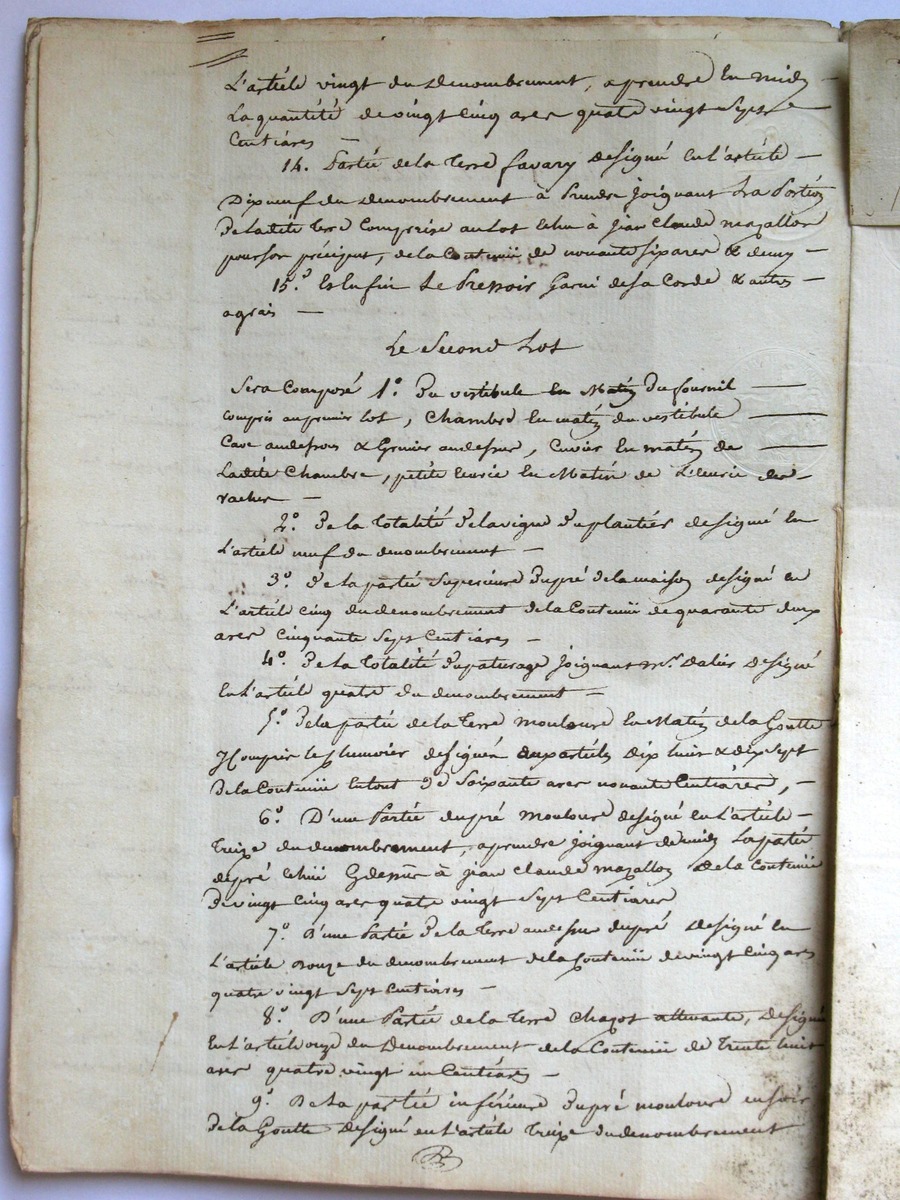 L'article vingt du denombrement, a prendre en midy
La quantité de vingt cinq ares quatre vingt sept
Centiares
14. Partie de la terre favary designé en l'article
Dix neuf du denombrement à prendre joignant La Portion
de ladite terre comprise au lot échu à jean Claude mazallon
pour son préciput, de la Contenue de nonante six ares & demy
15.° Et Enfin Le Pressoir garni de sa Corde & autres
agrais
Le Second Lot
Sera Composé 1.° Du vestibule en Matin du fournil
compris au premier lot, Chambre en matin du vestibule
Cave au desous & Grenier au desus, Cuvier en matin de
Ladite Chambre, petite Ecurie en Matin de L'Ecurie des
vaches
2.° De la Totalité de la vigne du plantier designé en
L'article neuf du denombrement
3.° De la partie Superieure du pré de la maison designé en
L'article cinq du denombrement de la Contenue de quarante deux
ares cinquante Sept Centiares
4.° De la Totalité du paturage joignant Mr. Dalier designé
en L'article quatre du denombrement
5.° De la partie de la terre mouloure en Matin de la Goutte
Y Compris le Chenevier designés dix huit & dix Sept
de la Contenue en tout de Soixante ares nonante Centiares,
6.° D'une Partie du pré mouloure designé en L'article
Treize du denombrement, a prendre joignant de midy La partie
de pré échue à jean Claude mazallon de la Contenue
de vingt Cinq ares quatre vingt Sept Centiares
7.° D'une Partie de la Terre au desus du pré designé en
L'article Douze du denombrement de la Contenue de vingt Cinq ares
quatre vingt Sept Centiares
8.° D'une Partie de la Terre Chagot attenante, designé
en L'article onze du Denombrement de la Contenue de Trente huit
ares quatre vingt un Centiares
9.° De La partie inférieure du pré mouloure en soir
de la Goutte designé en L'article Treize du denombrement